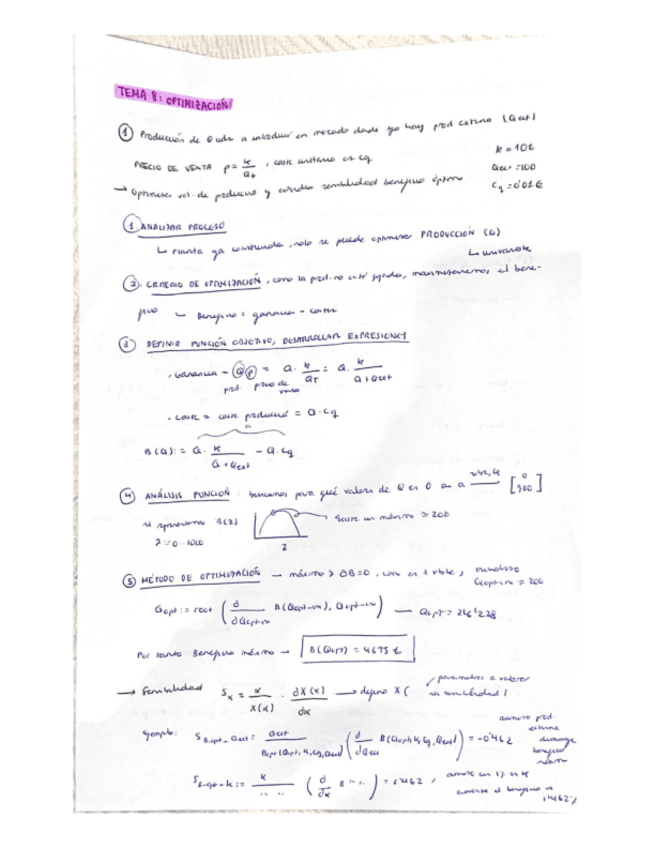 TEMA 8: OPTIMIZACIÓN
① Producción de Q uds a introducir en mercado donde ya hay prod externo (Qext)
PRECIO DE VENTA p = k/QT , coste unitario es cq
k = 10€
Qext = 100
cq = 0'01€
→ Optimizar vol. de producción y estudio sensibilidad beneficio óptimo
① ANALIZAR PROCESO
↳ Planta ya construida, solo se puede optimizar PRODUCCIÓN (Q)
↳ univariable
② CRITERIO DE OPTIMIZACIÓN, como la prod. no está fijada, maximizaremos el bene-
ficio ↳ Beneficio = ganancia - costes
③ DEFINIR FUNCIÓN OBJETIVO, DESARROLLAR EXPRESIONES
· Ganancia = Q·p = Q · k/QT = Q · k/(Q + Qext)
prod. precio de venta
· Coste = coste producción = Q·cq
B(Q) := Q · k/(Q + Qext) - Q·cq
④ ANÁLISIS FUNCIÓN : buscamos para qué valores de Q es 0 [0 900]
si representamos B(z)
z := 0..1000
existe un máximo ≃ 200
z
⑤ MÉTODO DE OPTIMIZACIÓN → máximo → ΔB=0, como es 1 vble,
Qopt := root (d/dQopt-in B(Qopt-in), Qopt-in) — Qopt = 216'228
Por tanto Beneficio máximo → B(Qopt) = 4'675 €
→ Sensibilidad Sα = α/X(α) · dX(α)/dα → defino X( parámetros a valorar su sensibilidad )
Ejemplo: SBopt_Qext := Qext/Bopt(Qopt,k,cq,Qext) (d/dQext B(Qopt,k,cq,Qext)) = -0'462
aumento prod. externa disminuye beneficio máximo
SBopt-k := k/" " (d/dk B " ") = 1'462 , aumento en 1% en k
aumenta el beneficio un 1'462%